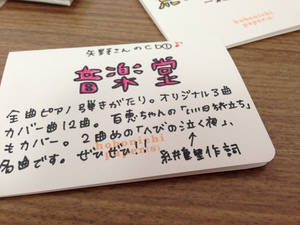 矢野さんのCD①♪
音楽堂
全曲ピアノ弾きがたり。オリジナル3曲
カバー曲12曲。百恵ちゃんの「いい日旅立ち」
もカバー。2曲めの「へびの泣く夜」、
名曲です。ぜひぜひ!
糸井重里作詞
hobonichi
papers